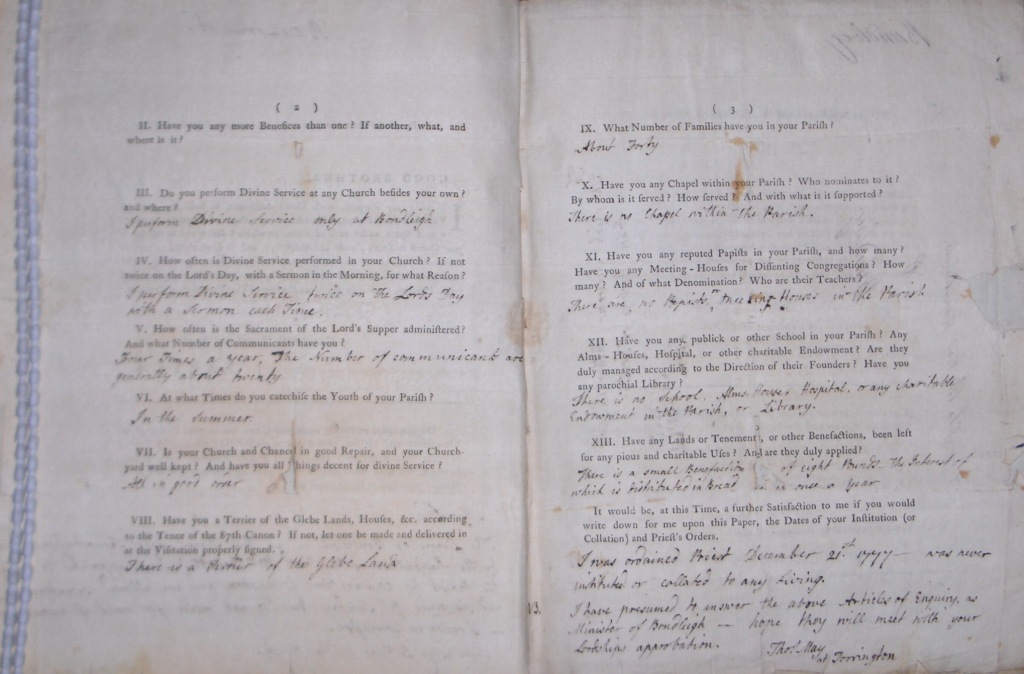 ( 2 )
II. Have you any more Benefices than one? If another, what, and
where is it?
III. Do you perform Divine Service at any Church besides your own?
and where?
I perform Divine Service only at Bondleigh
IV. How often is Divine Service performed in your Church? If not
twice on the Lord's Day, with a Sermon in the Morning, for what Reason?
I perform Divine Service twice on the Lords Day
with a Sermon each Time.
V. How often is the Sacrament of the Lord's Supper administered?
And what Number of Communicants have you?
Four Times a year, The Number of communicants are
generally about twenty
VI. At what Times do you catechise the Youth of your Parish?
In the Summer
VII. Is your Church and Chancel in good Repair, and your Church-
yard well kept? And have you all Things decent for divine Service?
All in good order
VIII. Have you a Terrier of the Glebe Lands, Houses, &c. according
to the Tenor of the 87th Canon? If not, let one be made and delivered in
at the Visitation properly signed.
There is a Terrier of the Glebe Land
( 3 )
IX. What Number of Families have you in your Parish?
About Forty
X. Have you any Chapel within your Parish? Who nominates to it?
By whom is it served? How served? And with what is it supported?
There is no Chapel within the Parish.
XI. Have you any reputed Papists in your Parish, and how many?
Have you any Meeting-Houses for Dissenting Congregations? How
many? And of what Denomination? Who are their Teachers?
There are no Papists, or meeting Houses in the Parish
XII. Have you any publick or other School in your Parish? Any
Alms-Houses, Hospital, or other charitable Endowment? Are they
duly managed according to the Direction of their Founders? Have you
any parochial Library?
There is no School, Alms House, Hospital, or any charitable
Endowment in the Parish, or Library.
XIII. Have any Lands or Tenements, or other Benefactions, been left
for any pious and charitable Uses? And are they duly applied?
There is a small Benefaction of eight Pounds. The Interest of
which is distributed in Bread once a year
It would be, at this Time, a further Satisfaction to me if you would
write down for me upon this Paper, the Dates of your Institution (or
Collation) and Priest's Orders.
I was ordained Priest December 21st 1777 — was never
instituted or collated to any Living.
I have presumed to answer the above Articles of Enquiry, as
Minister of Bondleigh — hope they will meet with your
Lordships approbation.
Thos. May
at Torrington